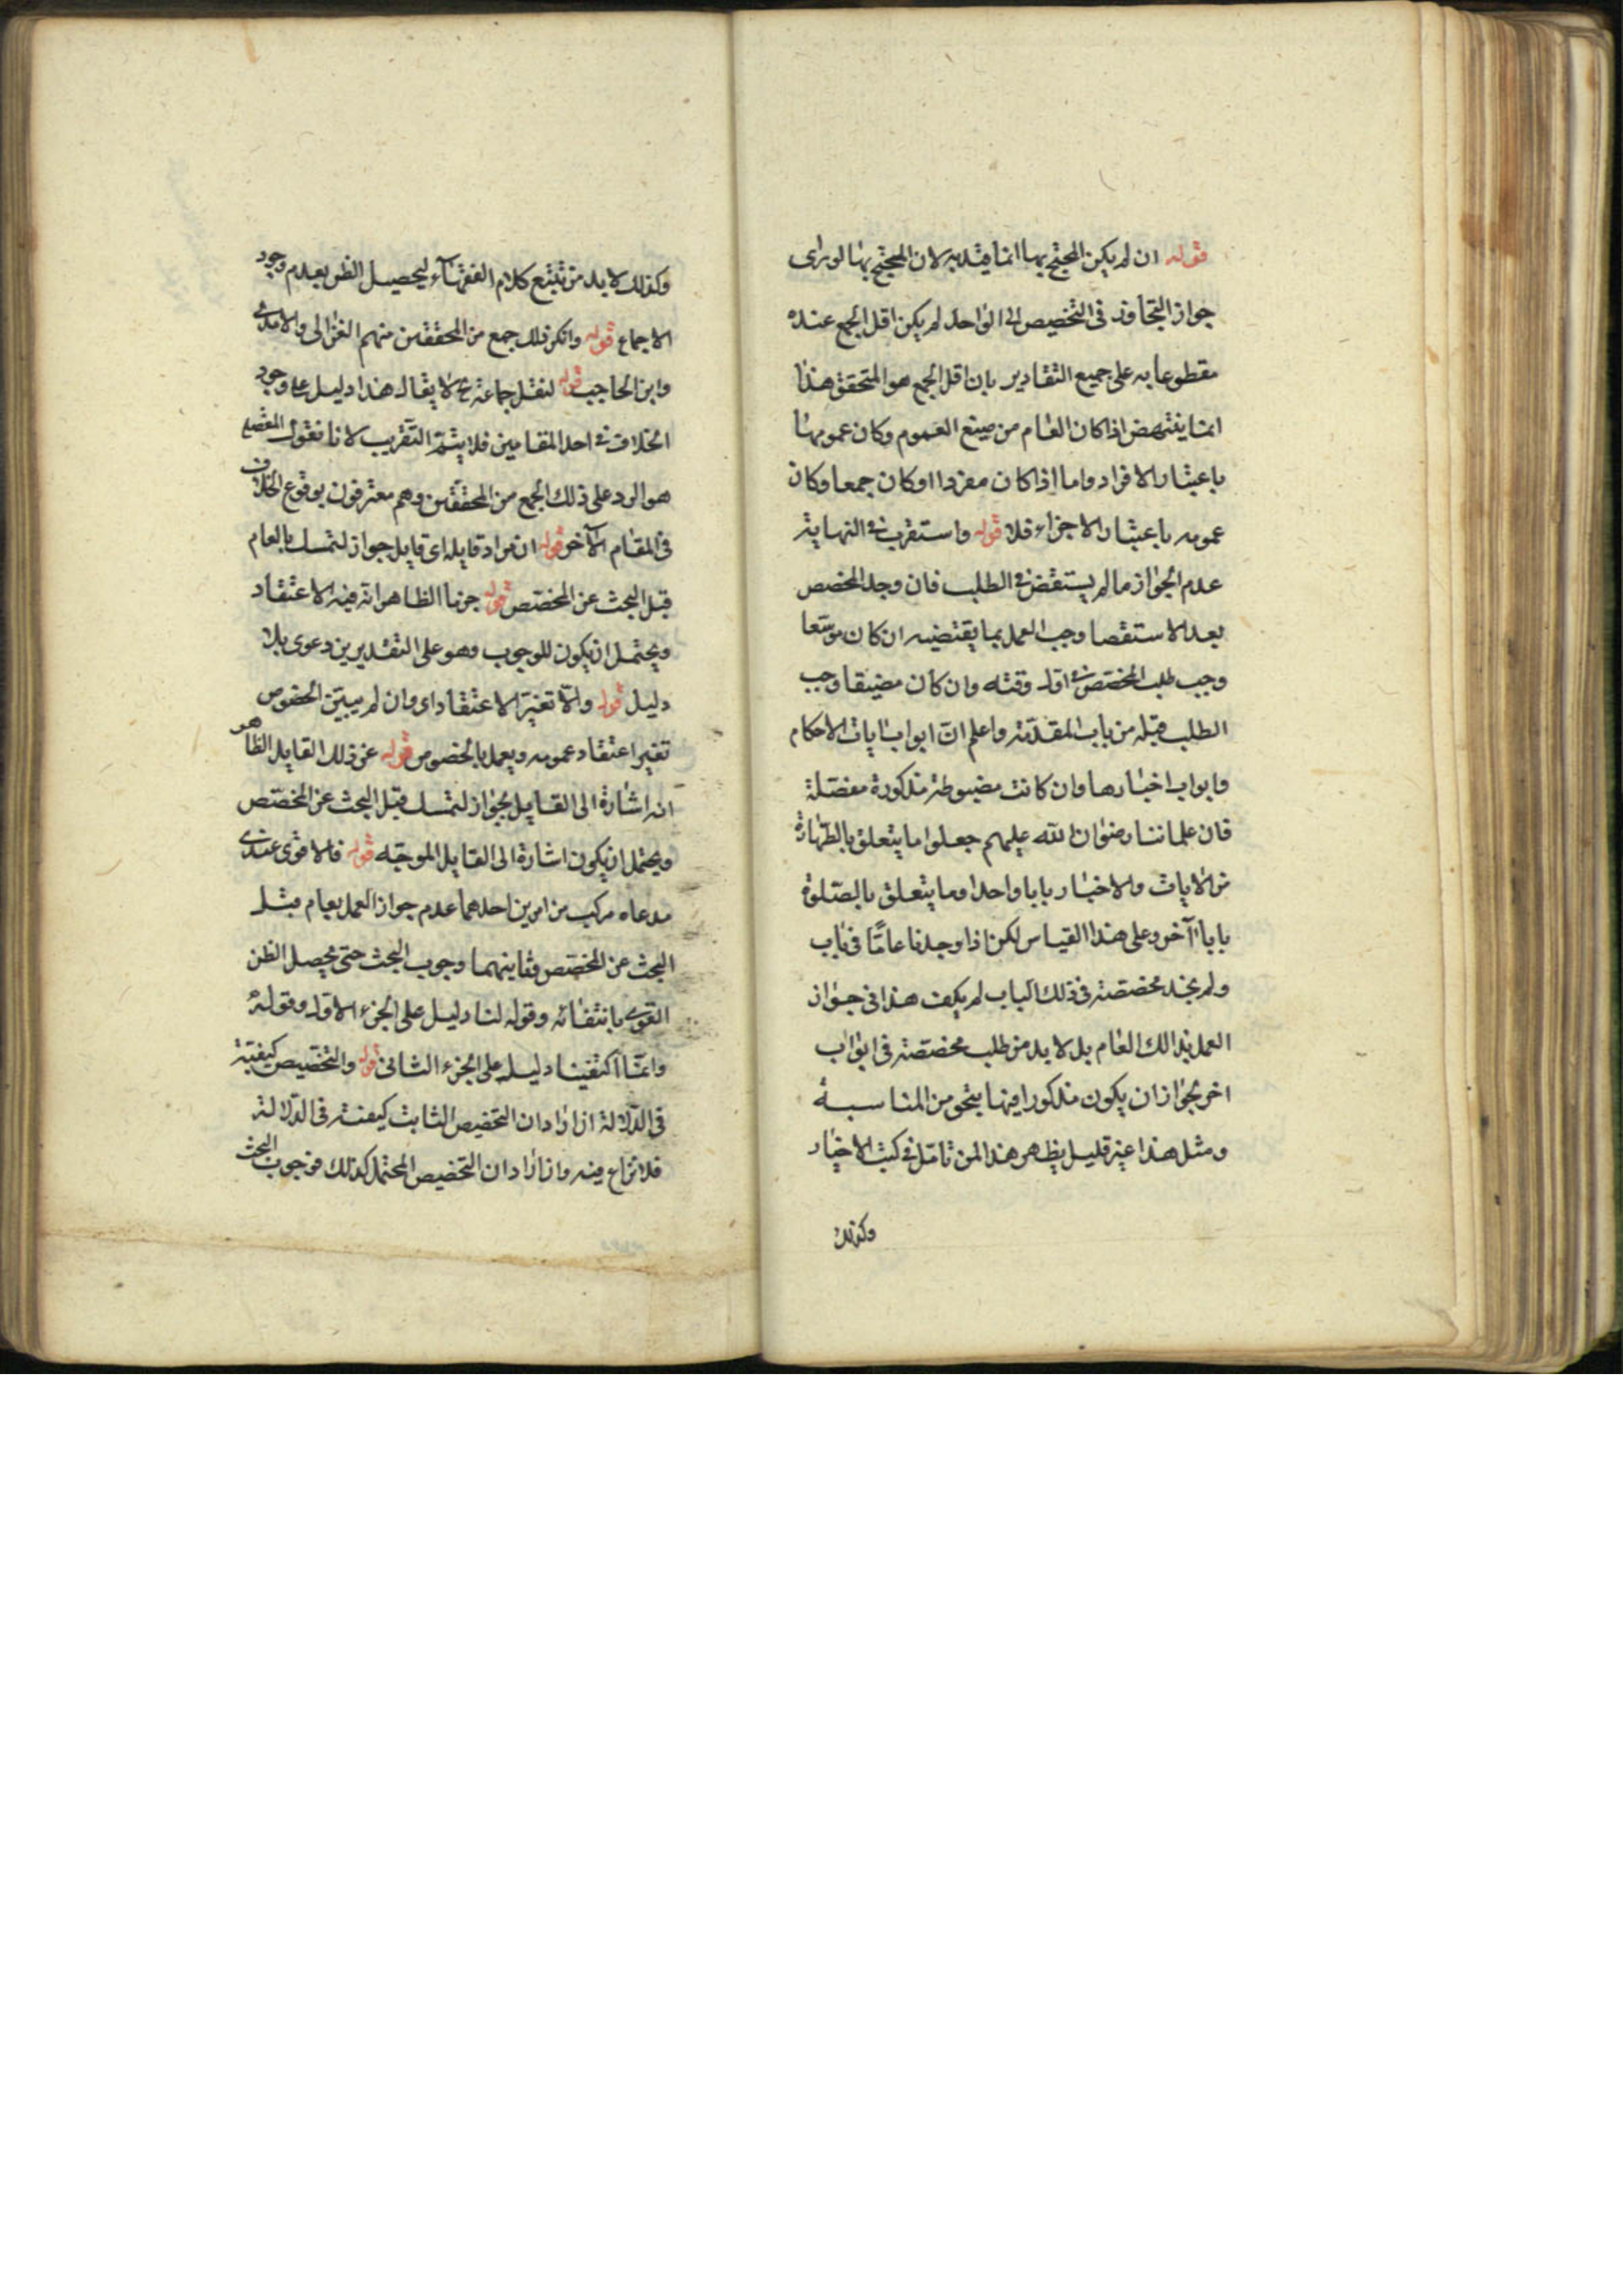 قوله ان لم يكن المحتج بها انما قيد به لان المحتج بها لو راى
جواز التجاوز فى التخصيص الى الواحد لم يكن اقل الجمع عنده
مقطوعا به على جميع التقادير بان اقل الجمع هو المتحقق هذا
انما ينتهض اذا كان العام من صيغ العموم وكان عمومها
باعتبار الافراد واما اذا كان مفردا او كان جمعا وكان
عمومه باعتبار الاجزاء فلا قوله واستقرب فى النهاية
عدم الجواز ما لم يستقض فى الطلب فان وجد المخصص
بعد الاستقصا وجب العمل بما يقتضيه ان كان موسّعا
وجب طلب المخصّص فى اول وقته وان كان مضيقا وجب
الطلب قبله من باب المقدّمة واعلم انّ ابواب ايات الاحكام
وابواب اخبارها وان كانت مضبوطة مذكورة مفصّلة
فان علماننا رضوان الله عليهم جعلوا ما يتعلق بالطّهارة
من الايات والاخبار بابا واحدا وما يتعلق بالصّلوة
بابا آخر وعلى هذا القياس لكن اذا وجدنا عامّا فى باب
ولم نجد مخصّصه فى ذلك الباب لم يكف هذا فى جواز
العمل بذالك العام بل لا بد من طلب مخصّصه فى ابواب
اخر لجواز ان يكون مذكورا فيها بنحو من المناسبة
ومثل هذا غير قليل يظهر هذا لمن تامّل فى كتب الاخبار
وكذلك
وكذلك لا بد من تتبع كلام الفقهآء ليحصيل الظن بعدم وجود
الاجماع قوله وانكر ذلك جمع من المحققين منهم الغزالى والامدى
وابن الحاجب قوله لنقل جماعة ع لا يقال هذا دليل على وجود
الخلاف فى احد المقامين فلا يتمّ التقريب لانا نقول المقصد
هو الرد على ذلك الجمع من المحققين وهم معترفون بوقوع الخلاف
فى المقام الآخر قوله ان مراد قايله اى قايل جواز لتمسك بالعام
قبل البحث عن المخصّص قوله جزما الظاهر انّه فيه الاعتقاد
ويحتمل ان يكون للوجوب وهو على التقديرين دعوى بلا
دليل قوله والّا تغيّر الاعتقاد اى وان لم يبيّن الخصوص
تغير اعتقاد عمومه ويعمل بالخصوص قوله عن ذلك القايل الظاهر
انه اشارة الى القايل بجواز لتمسك قبل البحث عن المخصّص
ويحتمل ان يكون اشارة الى القايل الموجّه قوله فالاقوى عندى
مدعاه مركب من امرين احدهما عدم جواز العمل بعام قبل
البحث عن المخصّص وثانيهما وجوب البحث حتى يحصل الظن
القوى بانتفائه وقوله لنا دليل على الجزء الاول وقوله
وانّما اكتفينا دليله على الجزء الثانى قوله والتخصيص كيفيّة
فى الدّلالة ان اراد ان التخصيص الثابت كيفيته فى الدّلالة
فلا نزاع فيه وان اراد ان التخصيص المحتمل كذلك فوجوب البحث